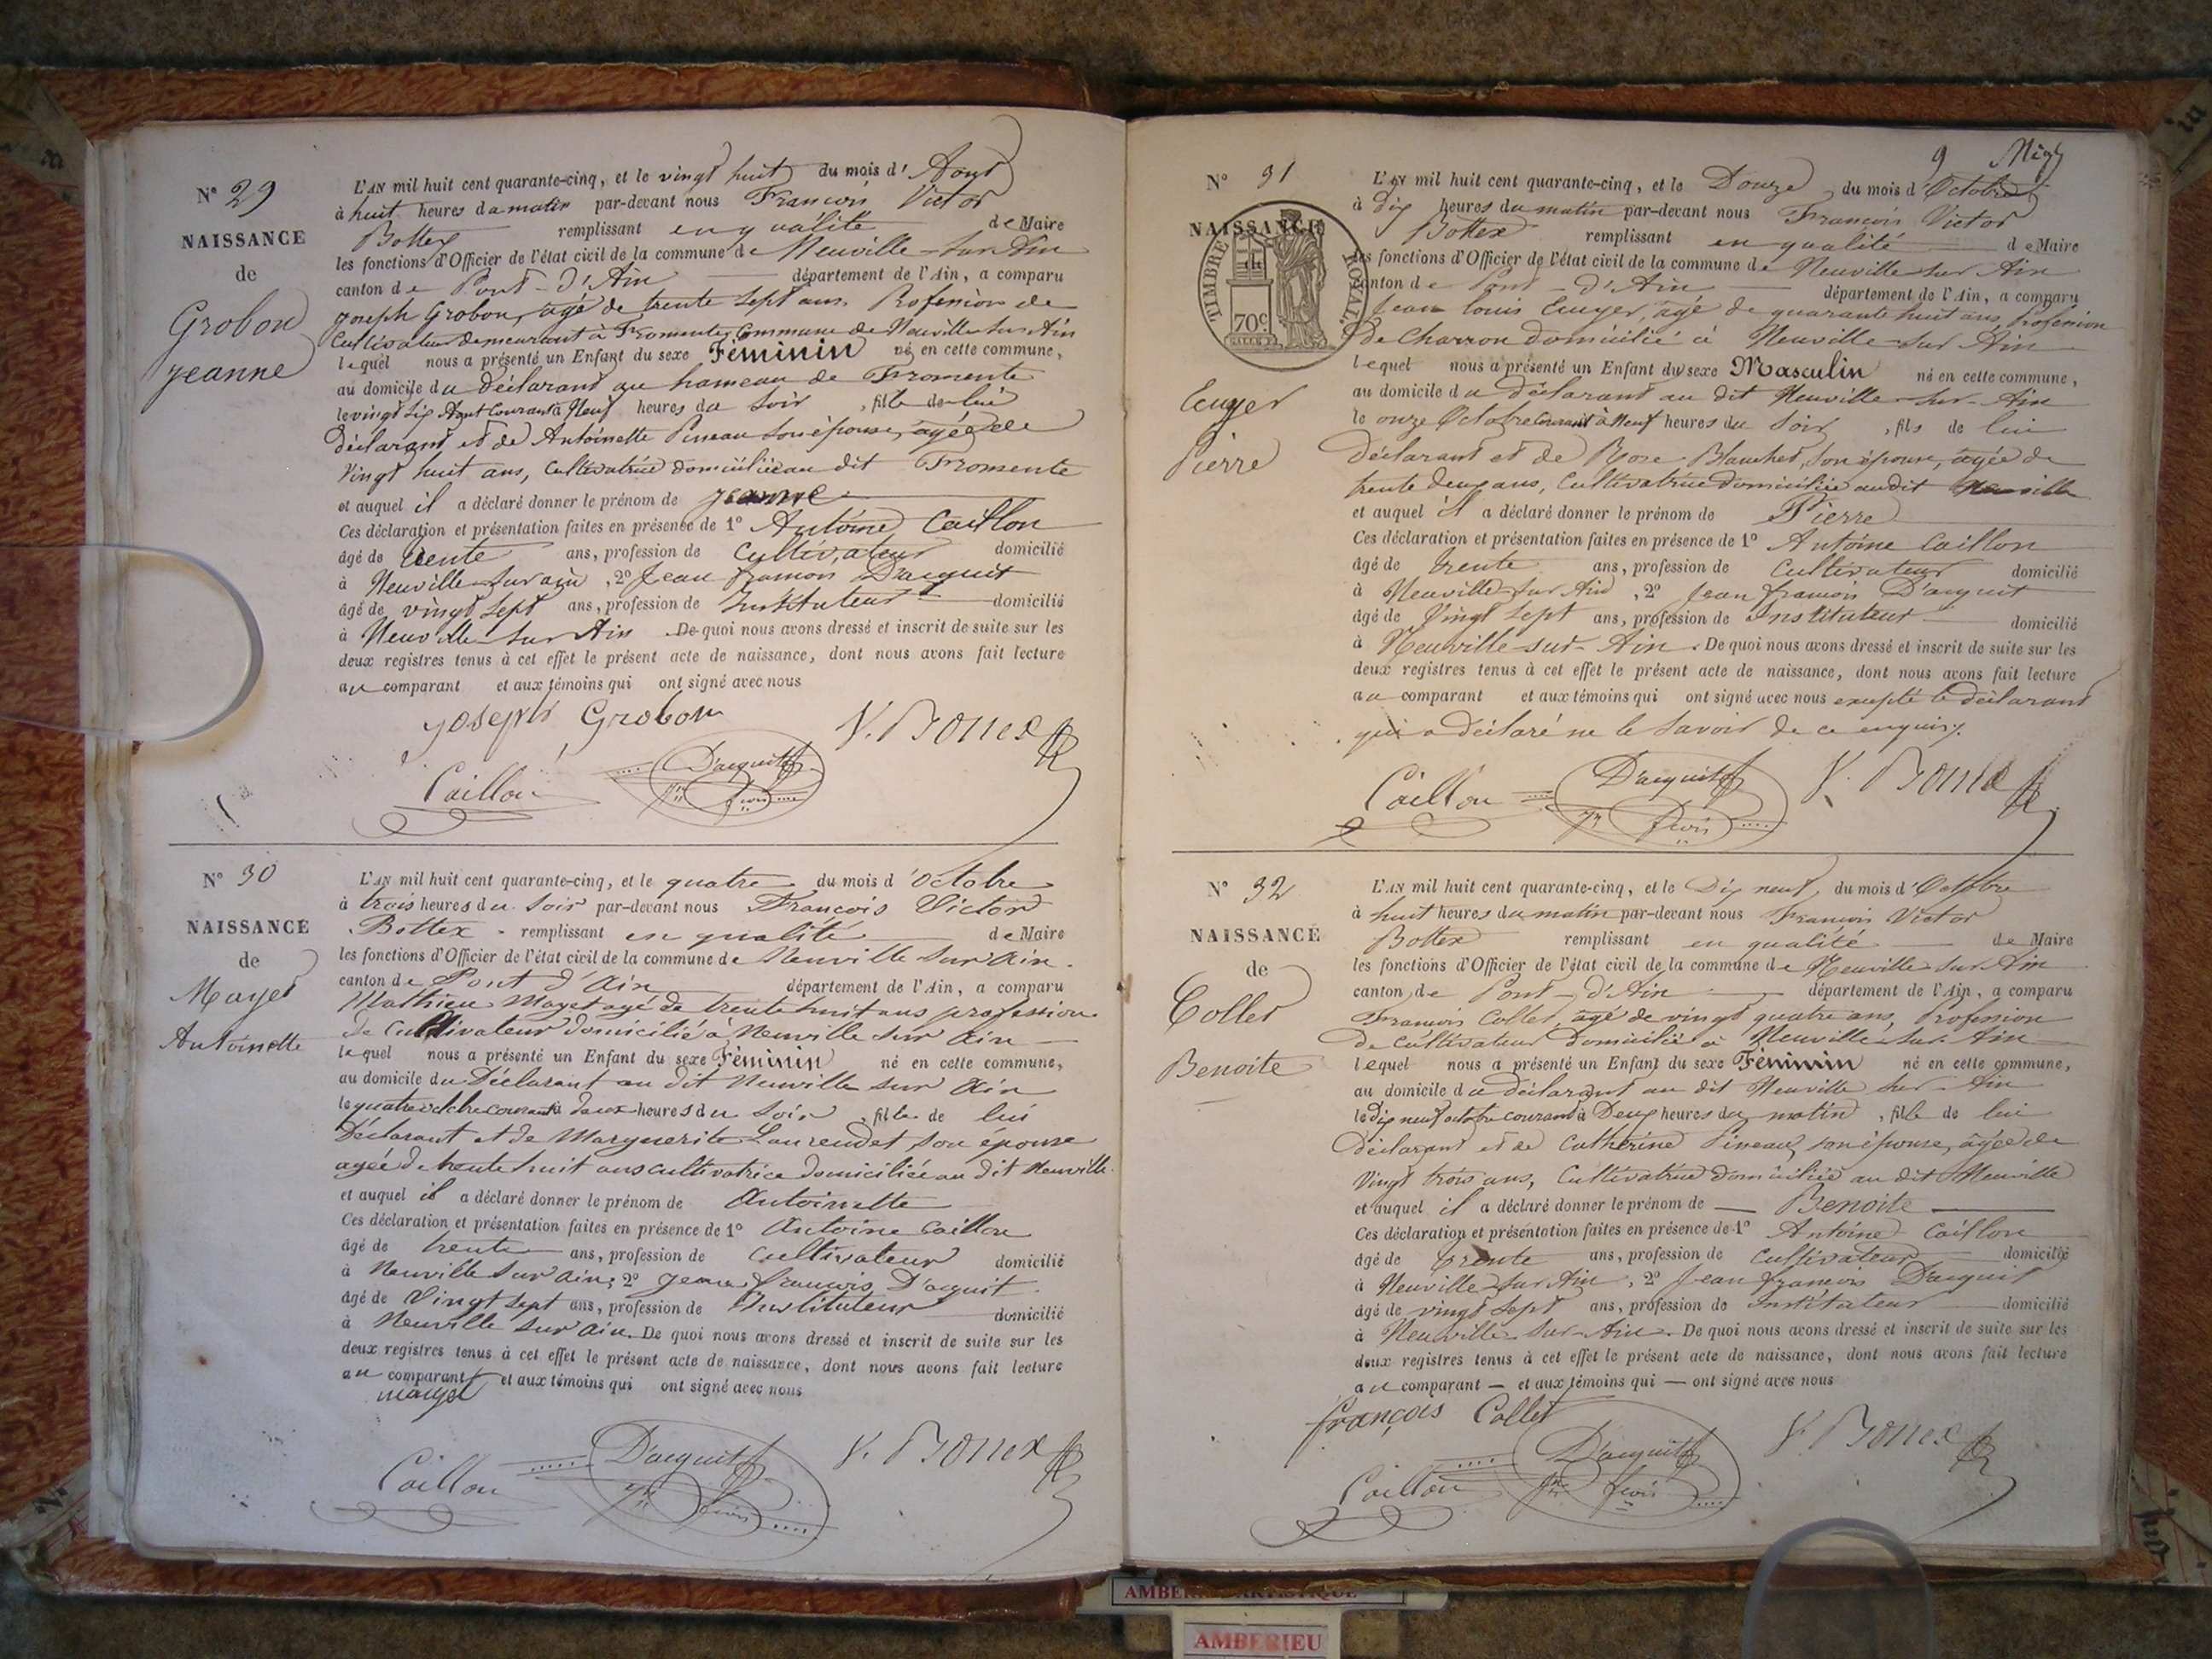 N° 29
NAISSANCE
de
Grobon
Jeanne
L'AN mil huit cent quarante-cinq, et le vingt huit du mois d'Aout
à huit heures du matin par-devant nous François Victor
Bottex remplissant en qualité de Maire
les fonctions d'Officier de l'état civil de la commune de Neuville-sur Ain
canton de Pont-d'Ain département de l'Ain, a comparu
Joseph Grobon, agé de trente sept ans, Profession de
Cultivateur demeurant à Fromente, Commune de Neuville sur Ain
lequel nous a présenté un Enfant du sexe Féminin né en cette commune,
au domicile du déclarant au hameau de Fromente
le vingt six Aout Courant à Neuf heures du soir, fille de lui
déclarant et de Antoinette Pineau son épouse, agée de
Vingt huit ans, cultivatrice domiciliée au dit Fromente
et auquel il a déclaré donner le prénom de Jeanne
Ces déclaration et présentation faites en présence de 1° Antoine Caillon
âgé de trente ans, profession de Cultivateur domicilié
à Neuville sur ain, 2° Jean françois D'acquit
âgé de vingt sept ans, profession de Instituteur domicilié
à Neuville sur Ain. De quoi nous avons dressé et inscrit de suite sur les
deux registres tenus à cet effet le présent acte de naissance, dont nous avons fait lecture
au comparant et aux témoins qui ont signé avec nous
Joseph Grobon V. Bottex
Caillon D'acquit
Jn fcois
N° 30
NAISSANCE
de
Mayet
Antoinette
L'AN mil huit cent quarante-cinq, et le quatre du mois d'Octobre
à trois heures du soir par-devant nous François Victor
Bottex remplissant en qualité de Maire
les fonctions d'Officier de l'état civil de la commune de Neuville sur Ain
canton de Pont d'Ain département de l'Ain, a comparu
Mathieu Mayet agé de trente huit ans profession
de Cultivateur domicilié à Neuville sur Ain
lequel nous a présenté un Enfant du sexe Féminin né en cette commune,
au domicile du Déclarant au dit Neuville sur Ain
le quatre octobre courant à deux heures du soir, fille de lui
Déclarant et de Marguerite Laurendet son épouse
agée de trente huit ans cultivatrice domiciliée au dit Neuville
et auquel il a déclaré donner le prénom de Antoinette
Ces déclaration et présentation faites en présence de 1° Antoine Caillon
âgé de trente ans, profession de cultivateur domicilié
à Neuville sur ain, 2° Jean françois D'acquit
âgé de Vingt sept ans, profession de Instituteur domicilié
à Neuville sur ain. De quoi nous avons dressé et inscrit de suite sur les
deux registres tenus à cet effet le présent acte de naissance, dont nous avons fait lecture
au comparant et aux témoins qui ont signé avec nous
mayet
Caillon D'acquit V. Bottex
Jn fcois
9
N° 31
NAISSANCE
TIMBRE ROYAL
70c
Pierre
L'AN mil huit cent quarante-cinq, et le Douze du mois d'Octobre
à dix heures du matin par-devant nous François Victor
Bottex remplissant en qualité de Maire
les fonctions d'Officier de l'état civil de la commune de Neuville sur Ain
canton de Pont-d'Ain département de l'Ain, a comparu
Jean louis agé de quarante huit ans, Profession
de Charron domicilié à Neuville-sur Ain
lequel nous a présenté un Enfant du sexe Masculin né en cette commune,
au domicile du déclarant au dit Neuville-sur-Ain
le onze Octobre courant à Neuf heures du Soir, fils de lui
Déclarant et de Rose Blanchet, son épouse, agée de
trente deux ans, Cultivatrice domiciliée au dit Neuville
et auquel il a déclaré donner le prénom de Pierre
Ces déclaration et présentation faites en présence de 1° Antoine Caillon
âgé de trente ans, profession de Cultivateur domicilié
à Neuville sur Ain, 2° Jean françois D'acquit
âgé de Vingt sept ans, profession de Instituteur domicilié
à Neuville-sur-Ain. De quoi nous avons dressé et inscrit de suite sur les
deux registres tenus à cet effet le présent acte de naissance, dont nous avons fait lecture
au comparant et aux témoins qui ont signé avec nous excepté le déclarant
qui a déclaré ne le savoir de ce enquis.
Caillon D'acquit V. Bottex
Jn fcois
N° 32
NAISSANCE
de
Collet
Benoite
L'AN mil huit cent quarante-cinq, et le Dix neuf du mois d'Octobre
à huit heures du matin par-devant nous François Victor
Bottex remplissant en qualité de Maire
les fonctions d'Officier de l'état civil de la commune de Neuville sur Ain
canton de Pont-d'Ain département de l'Ain, a comparu
François Collet, agé de vingt quatre ans, Profession
de Cultivateur Domicilié à Neuville-sur-Ain
lequel nous a présenté un Enfant du sexe Féminin né en cette commune,
au domicile du déclarant au dit Neuville sur-Ain
le Dix neuf octobre courant à Deux heures du matin, fille de lui
Déclarant et de Catherine Pineau, son épouse, agée de
Vingt trois ans, Cultivatrice domiciliée au dit Neuville
et auquel il a déclaré donner le prénom de Benoite
Ces déclaration et présentation faites en présence de 1° Antoine Caillon
âgé de trente ans, profession de Cultivateur domicilié
à Neuville sur Ain, 2° Jean françois D'acquit
âgé de vingt sept ans, profession de Instituteur domicilié
à Neuville-sur-Ain. De quoi nous avons dressé et inscrit de suite sur les
deux registres tenus à cet effet le présent acte de naissance, dont nous avons fait lecture
au comparant — et aux témoins qui — ont signé avec nous
françois Collet
Caillon D'acquit V. Bottex
Jn fcois
AMBERIEU